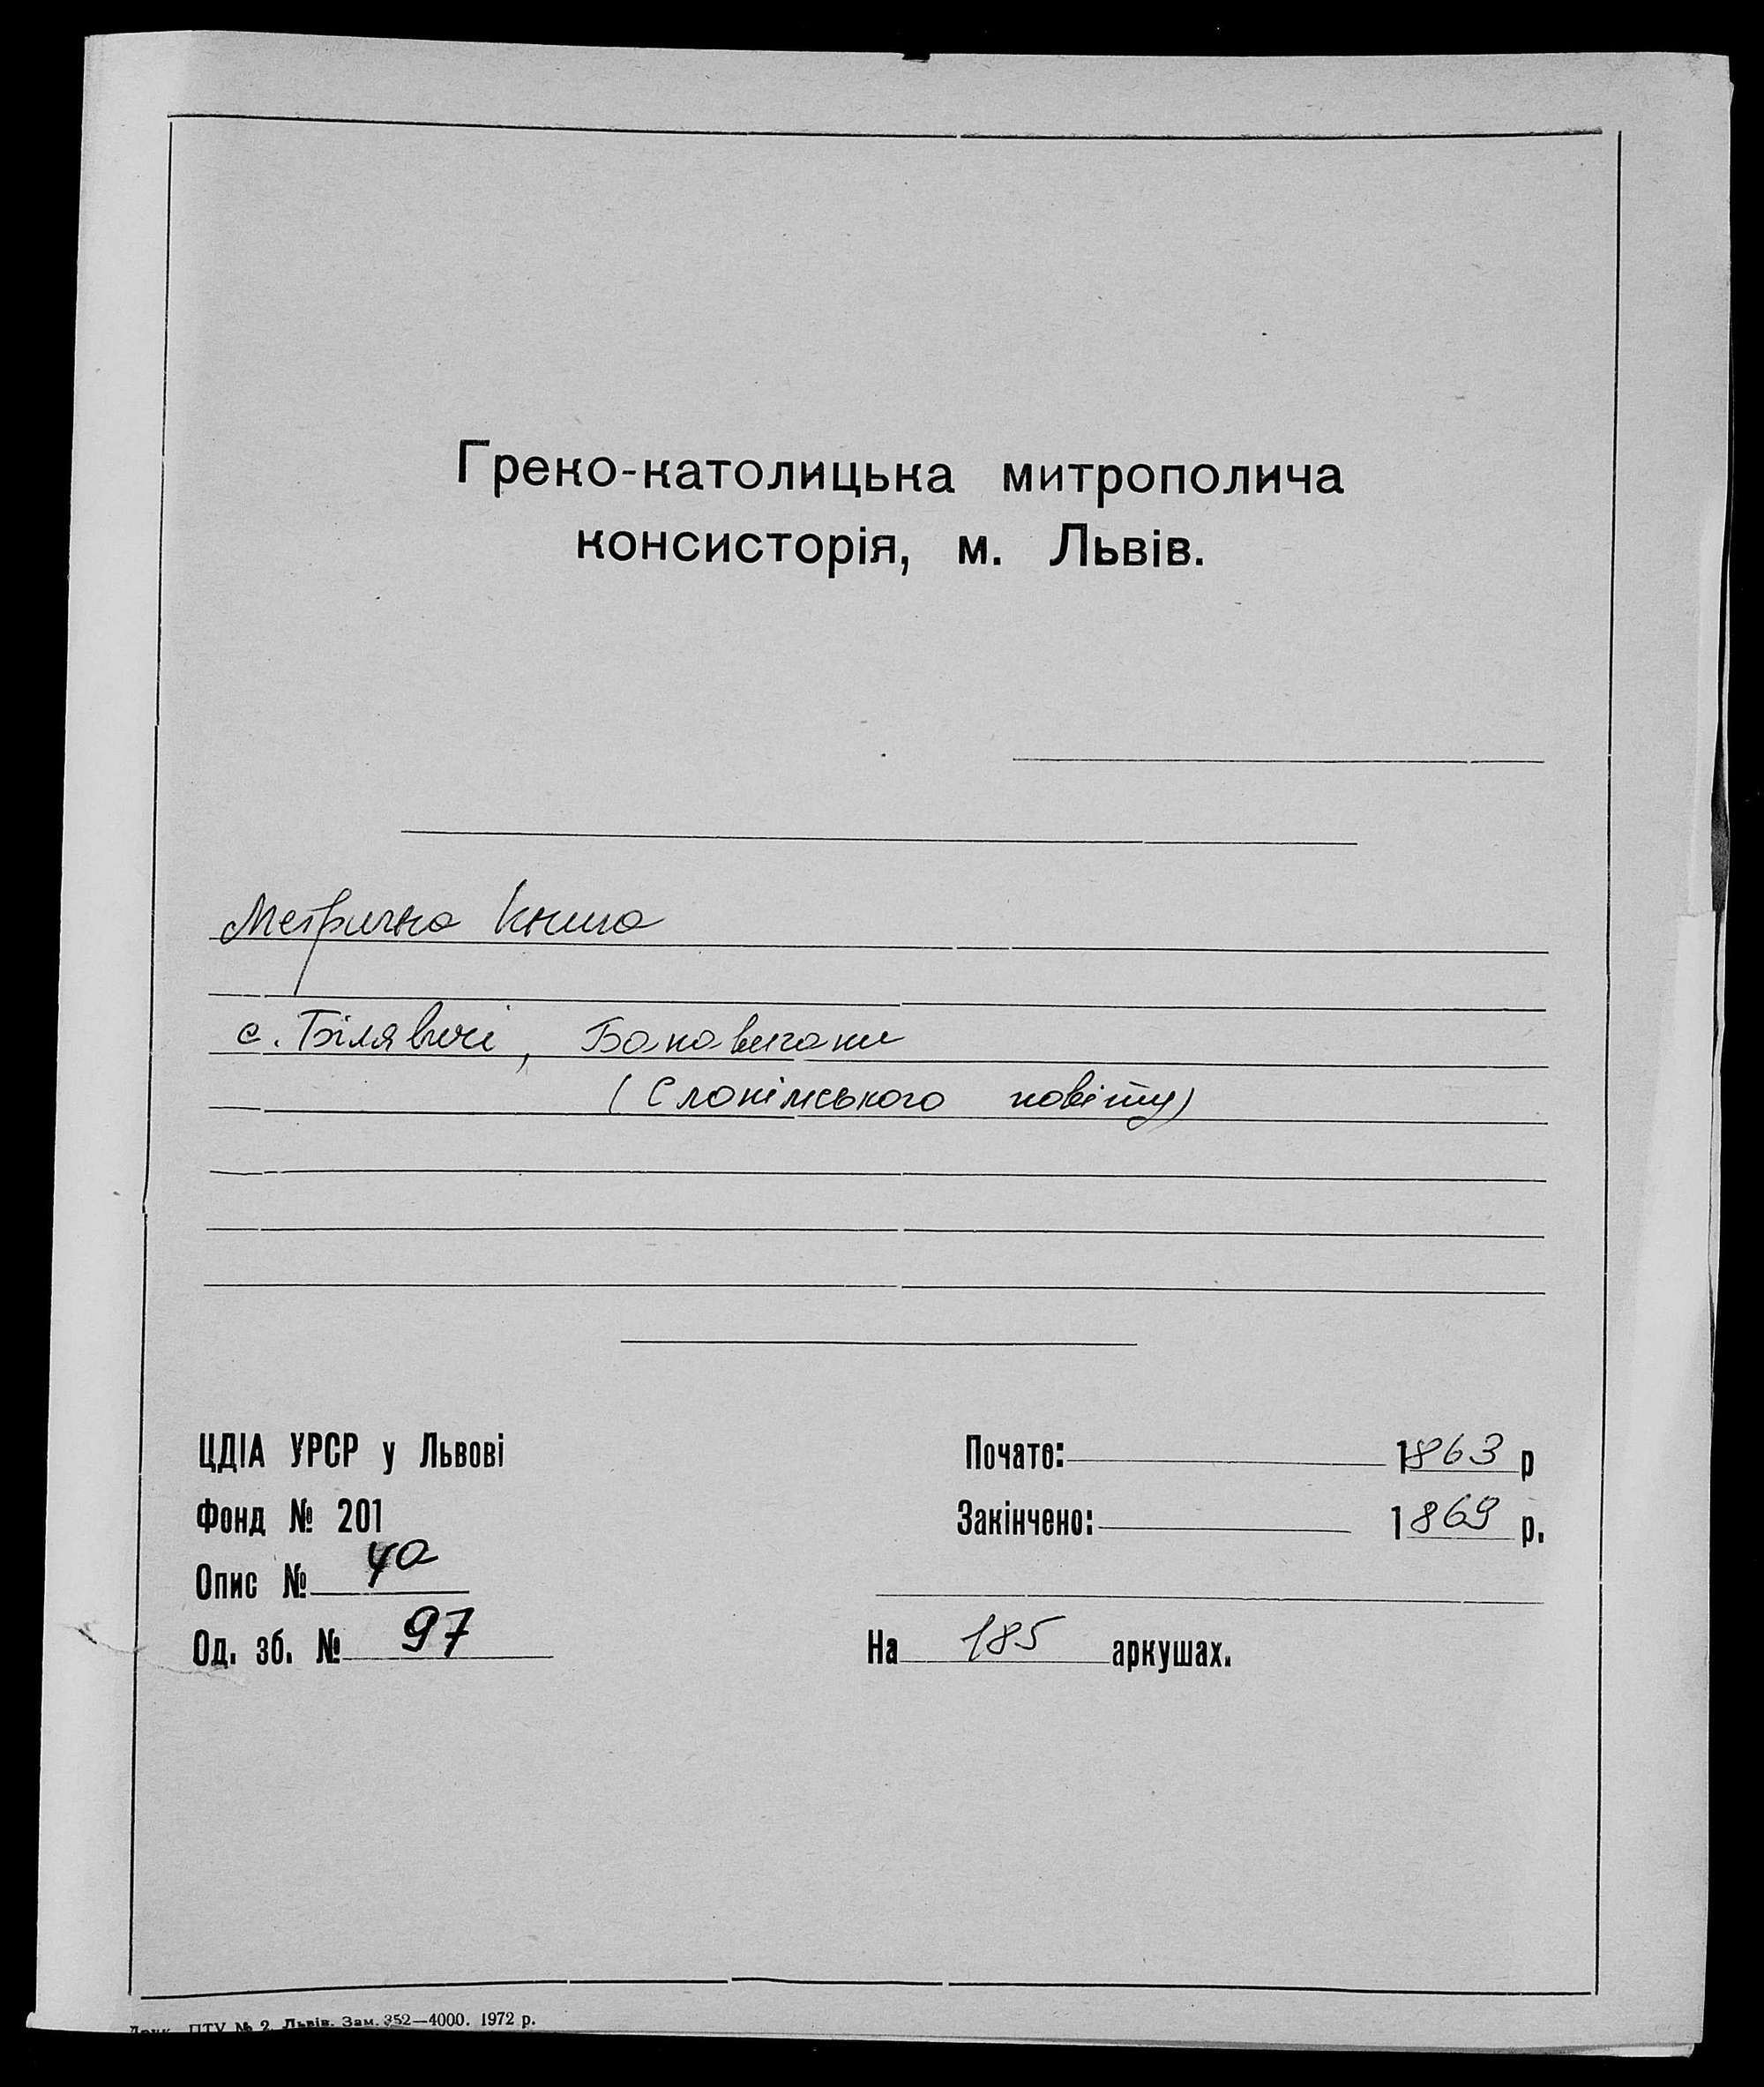 Греко-католицька митрополича
консисторія, м. Львів.
Метрична книга
с. Білявичі,
(Слонімського повіту)
ЦДІА УРСР у Львові
Фонд № 201
Опис № 4а
Од. зб. № 97
Почато: 1863 р
Закінчено: 1869 р.
На 185 аркушах.
Друк. ПТУ № 2. Львів. Зам. 352—4000. 1972 р.